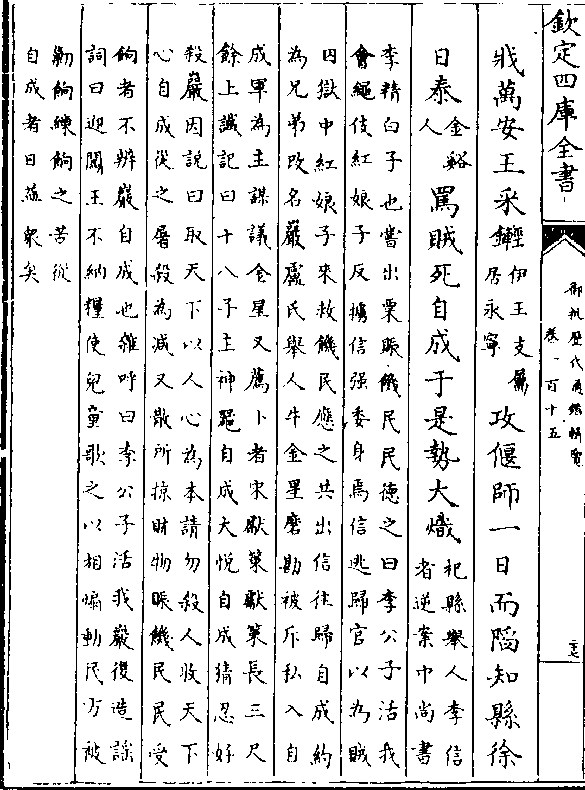 欽定四庫全書
御批歷代通鑑輯覽
卷一百十五
戕萬安王采鑋伊王支屬
居永寧攻偃師一日而陷知縣徐
日泰金谿
人罵賊死自成于是勢大熾杞縣舉人李信
者逆案中尚書
李精白子也嘗出粟賑饑民民德之曰李公子活我
會繩伎紅娘子反擄信强委身焉信逃歸官以為賊
囚獄中紅娘子來救饑民應之共出信往歸自成約
為兄弟改名巖盧氏舉人牛金星磨勘被斥私入自
成軍為主謀議金星又薦卜者宋獻策獻策長三尺
餘上讖記曰十八子主神器自成大悅自成猜忍好
殺巖因說曰取天下以人心為本請勿殺人收天下
心自成從之屠殺為減又散所掠財物賑饑民民受
餉者不辨巖自成也雜呼曰李公子活我巖復造謡
詞曰迎闖王不納糧使兒童歌之以相煽動民方被
勦餉練餉之苦從
自成者日益衆矣